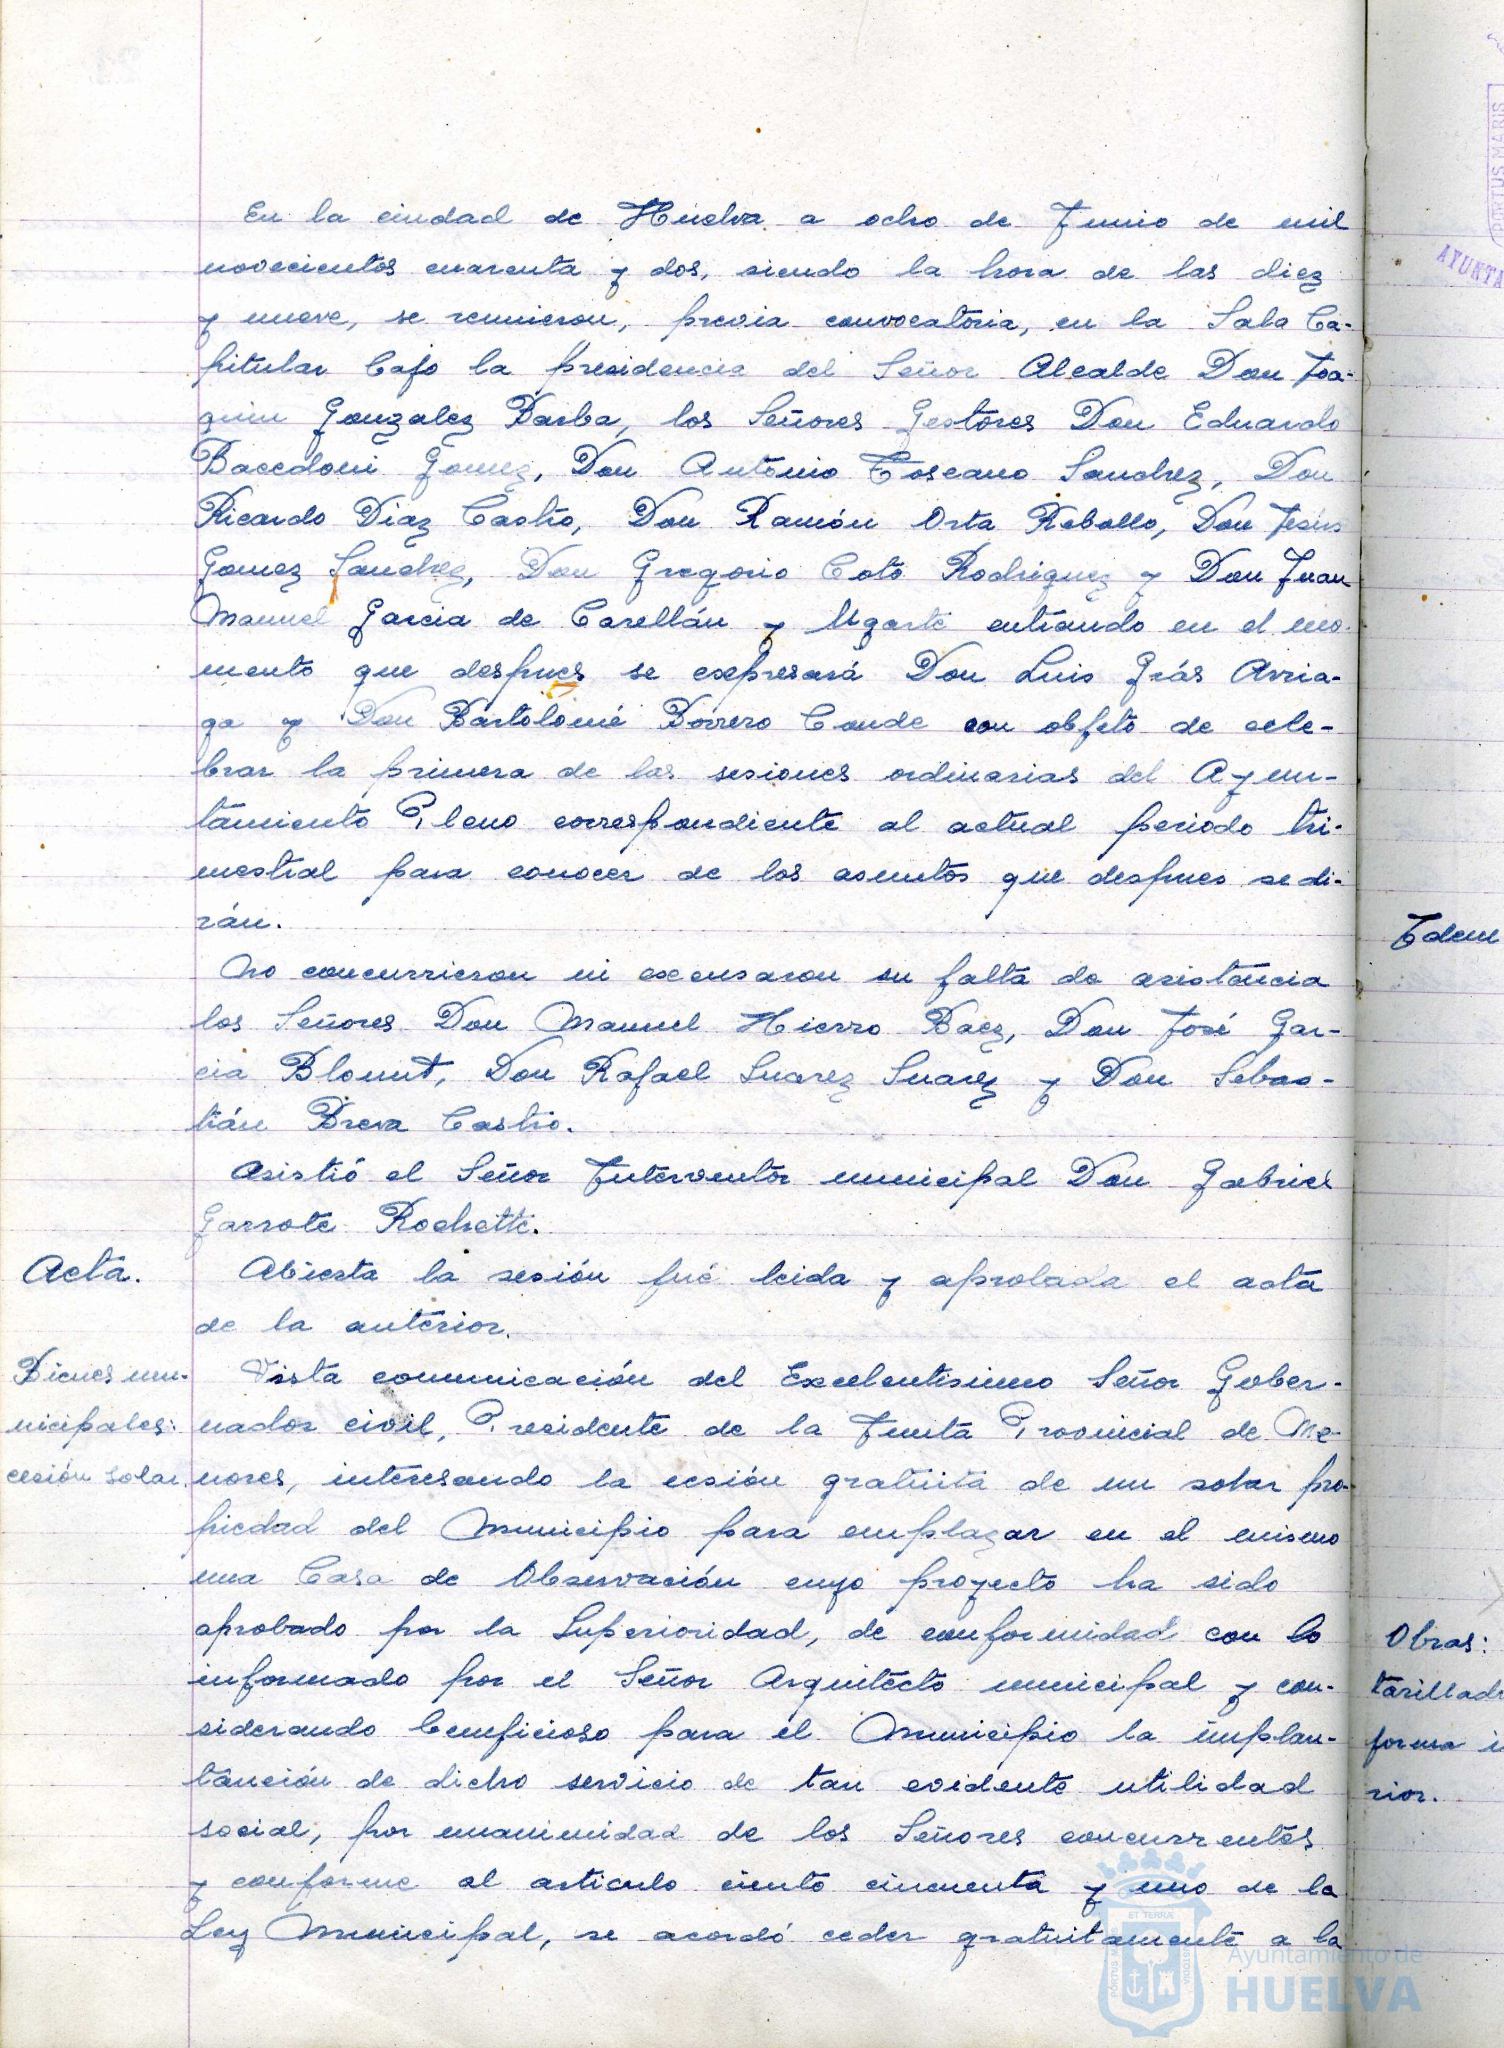 En la ciudad de Huelva a ocho de Junio de mil
novecientos cuarenta y dos, siendo la hora de las diez
y nueve, se reunieron, previa convocatoria, en la Sala Ca-
pitular bajo la presidencia del Señor Alcalde Don Joa-
quin Gonzalez Barba, los Señores Gestores Don Eduardo
Bacedoni Gomez, Don Antonio Toscano Sanchez, Don
Ricardo Diaz Castro, Don Ramón Orta Rebollo, Don Jesús
Gomez Sanchez, Don Gregorio Coto Rodriguez y Don Juan
Manuel Garcia de Carellán y Ugarte entrando en el mo-
mento que despues se expresará Don Luis Grás Arria-
ga y Don Bartolomé Borrero Conde con objeto de cele-
brar la primera de las sesiones ordinarias del Ayun-
tamiento Pleno correspondiente al actual periodo tri-
mestral para conocer de los asuntos que despues se di-
rán.
No concurrieron ni excusaron su falta de asistencia
los Señores Don Manuel Hierro Baez, Don José Gar-
cia Blount, Don Rafael Suarez Suarez y Don Sebas-
tián Breva Castro.
Asistió el Señor Interventor municipal Don Gabriel
Garrote Rochette.
Acta.
Abierta la sesión fué leida y aprobada el acta
de la anterior.
Bienes mu-
nicipales:
cesión solar.
Vista comunicación del Excelentisimo Señor Gober-
nador civil, Presidente de la Junta Provincial de Me-
nores, interesando la cesión gratuita de un solar pro-
piedad del Municipio para emplazar en el mismo
una Casa de Observación cuyo proyecto ha sido
aprobado por la Superioridad, de conformidad con lo
informado por el Señor Arquitecto municipal y con-
siderando beneficioso para el Municipio la implan-
tanción de dicho servicio de tan evidente utilidad
social, por unanimidad de los Señores concurrentes
y conforme al articulo ciento cincuenta y uno de la
Ley Municipal, se acordó ceder gratuitamente a la
PORTUS MARIS
AYUNTA
Idem
Obras:
tarillado
forma i
rior.
PORTUS MARIS
ET TERRÆ
CUSTODIA
Ayuntamiento de
HUELVA